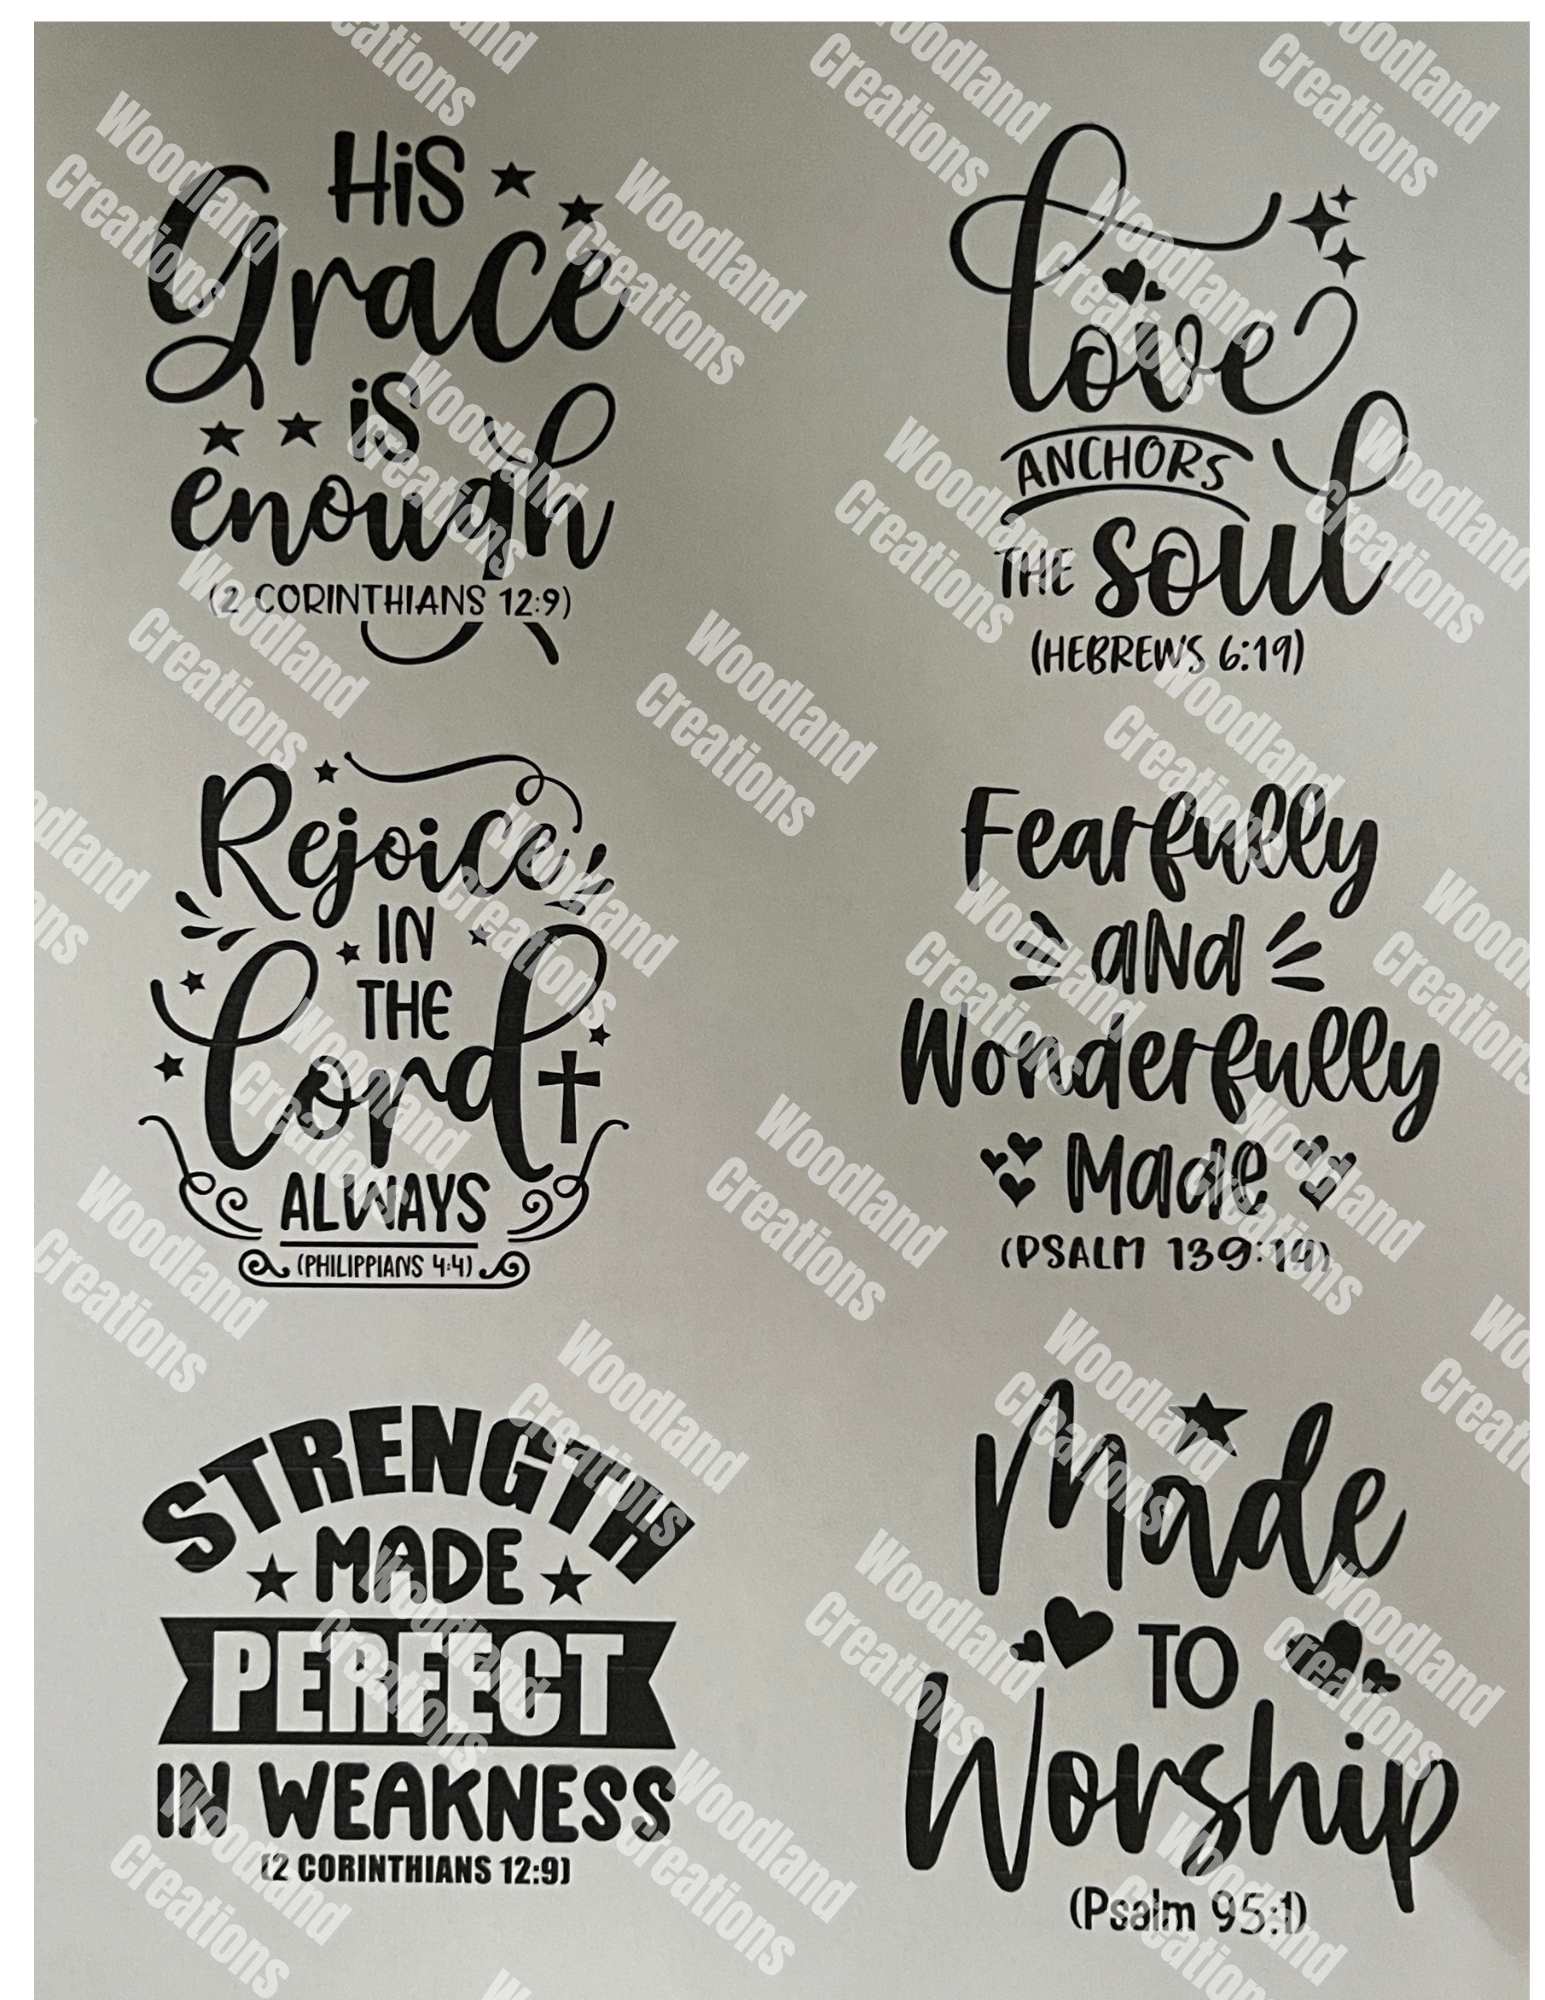 His
Grace
is
enough
(2 CORINTHIANS 12:9)
love
ANCHORS
THE soul
(HEBREWS 6:19)
Rejoice
IN
THE
Lord
ALWAYS
(PHILIPPIANS 4:4)
Fearfully
and
Wonderfully
Made
(PSALM 139:14)
STRENGTH
MADE
PERFECT
IN WEAKNESS
(2 CORINTHIANS 12:9)
Made
TO
Worship
(Psalm 95:1)
Woodland
Creations